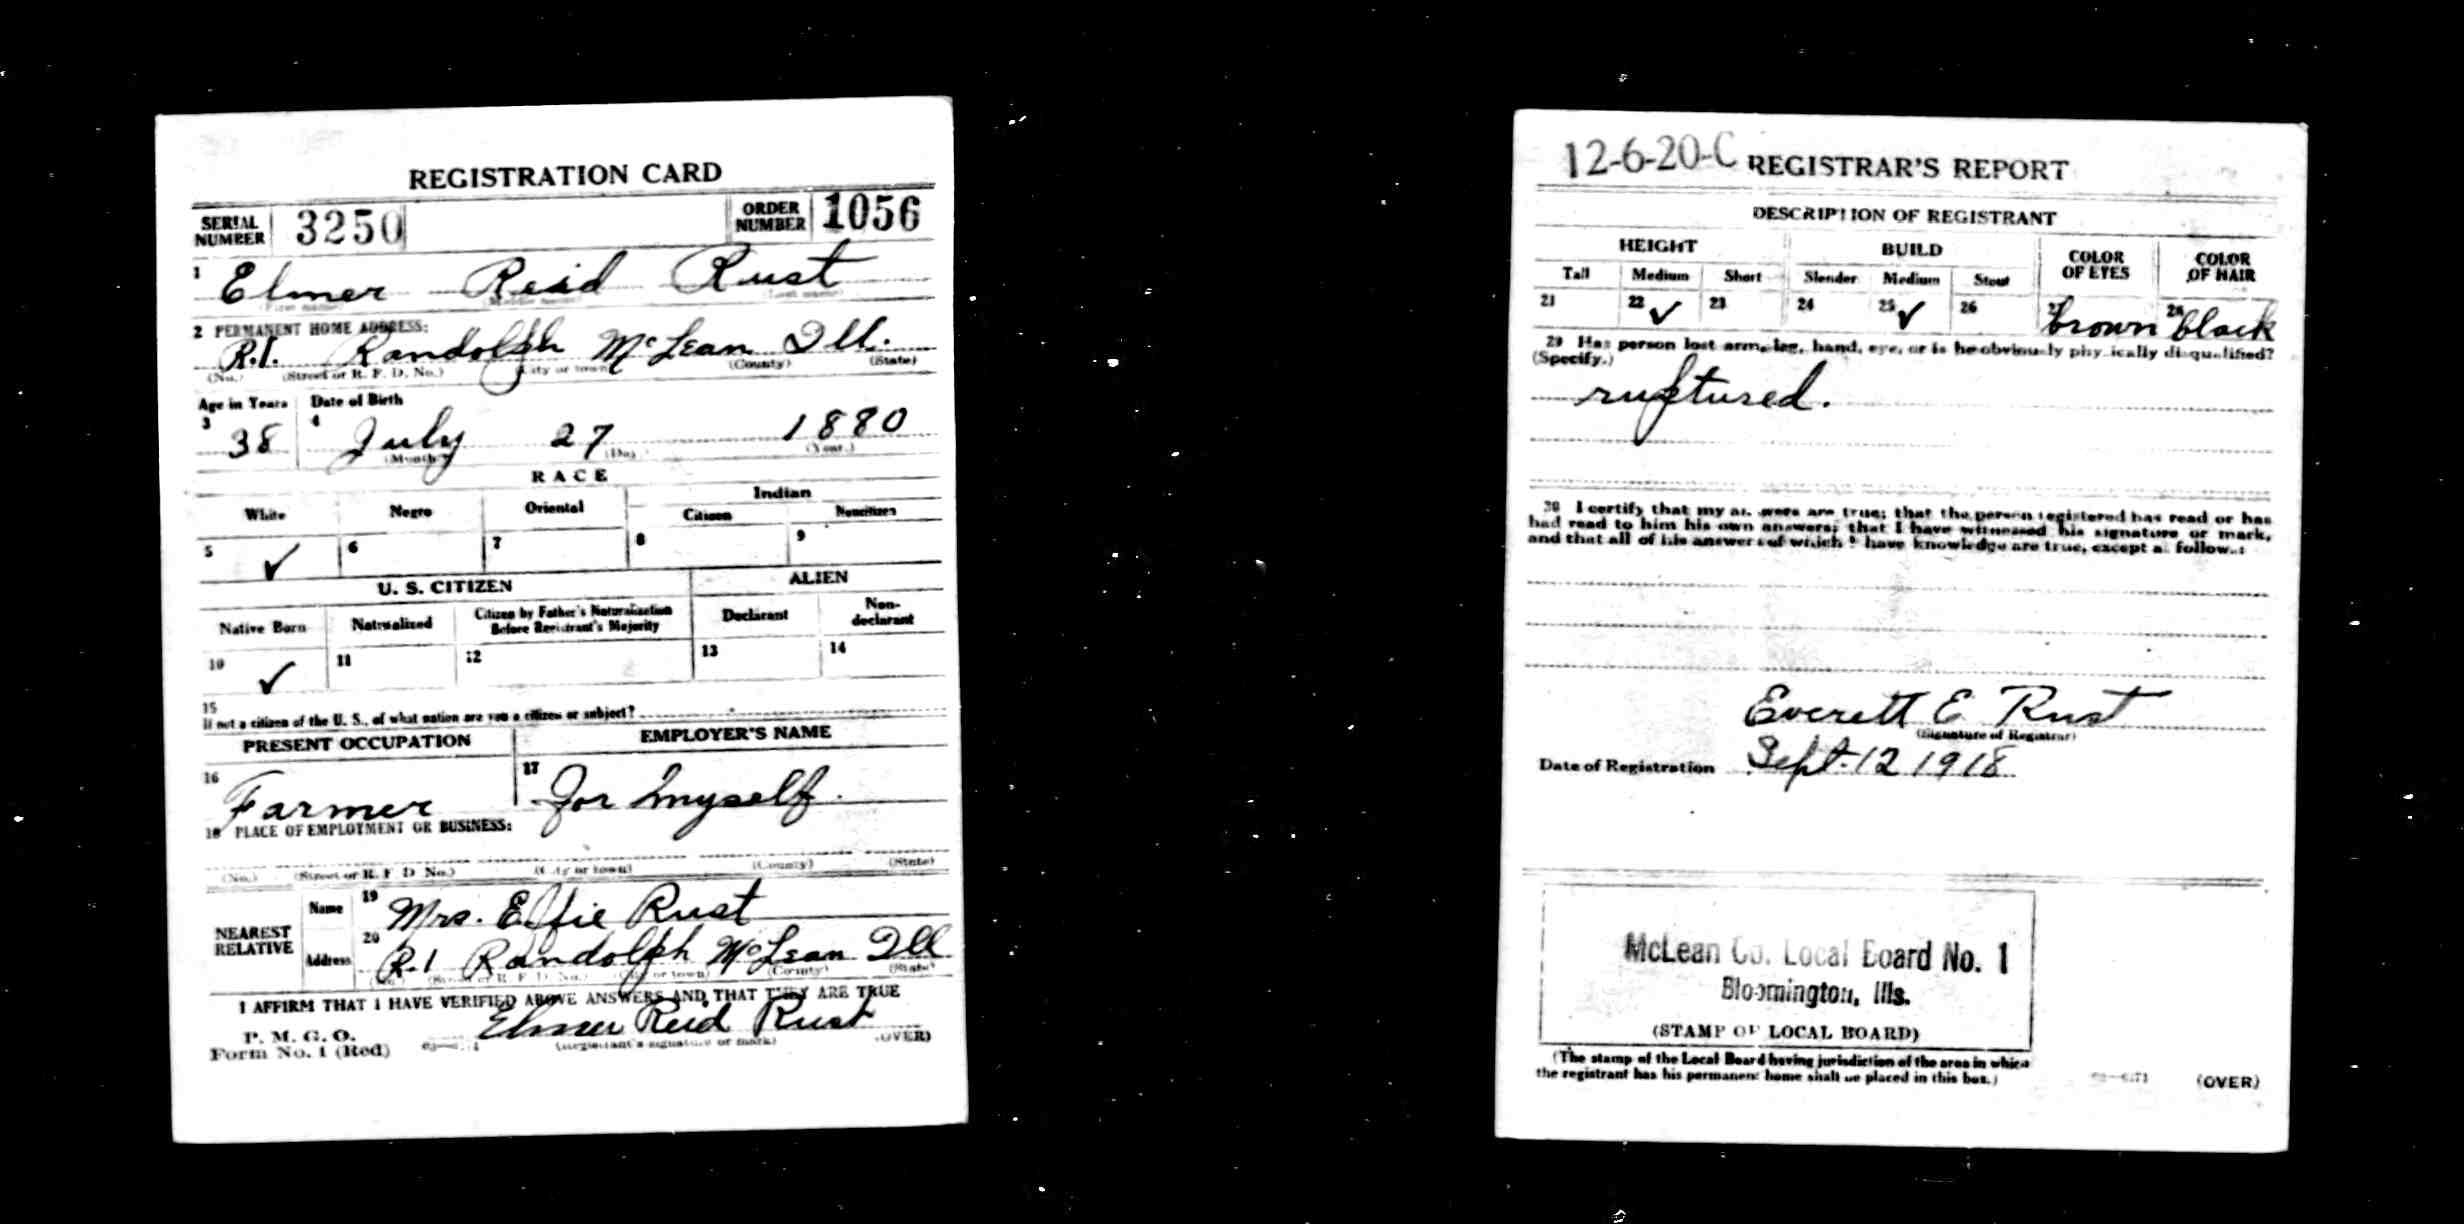 REGISTRATION CARD
SERIAL NUMBER 3250 ORDER NUMBER 1056
1 Elmer Reid Rust
(First name) (Middle name) (Last name)
2 PERMANENT HOME ADDRESS:
R.1. Randolph McLean Ill.
(No.) (Street or R. F. D. No.) (City or town) (County) (State)
Age in Years Date of Birth
3 38 4 July 27 1880
(Month) (Day) (Year.)
RACE
White Negro Oriental Indian
Citizen Noncitizen
5 ✓ 6 7 8 9
U. S. CITIZEN ALIEN
Native Born Naturalized Citizen by Father's Naturalization Before Registrant's Majority Declarant Non-declarant
10 ✓ 11 12 13 14
15
If not a citizen of the U. S., of what nation are you a citizen or subject?
PRESENT OCCUPATION EMPLOYER'S NAME
16 Farmer 17 For myself.
18 PLACE OF EMPLOYMENT OR BUSINESS:
(No.) (Street or R. F. D. No.) (City or town) (County) (State)
NEAREST RELATIVE
Name 19 Mrs. Effie Rust
Address 20 R.1 Randolph McLean Ill
(No.) (Street or R. F. D. No.) (City or town) (County) (State)
I AFFIRM THAT I HAVE VERIFIED ABOVE ANSWERS AND THAT THEY ARE TRUE
P. M. G. O.
Form No. 1 (Red) Elmer Reid Rust
(Registrant's signature or mark) (OVER)
12-6-20-C REGISTRAR'S REPORT
DESCRIPTION OF REGISTRANT
HEIGHT BUILD COLOR OF EYES COLOR OF HAIR
Tall Medium Short Slender Medium Stout
21 22 ✓ 23 24 25 ✓ 26 27 brown 28 black
29 Has person lost arm, leg, hand, eye, or is he obviously physically disqualified?
(Specify.)
ruptured.
30 I certify that my answers are true; that the person registered has read or has
had read to him his own answers; that I have witnessed his signature or mark,
and that all of his answers of which I have knowledge are true, except as follows:
Everett E Rust
(Signature of Registrar)
Date of Registration Sept. 12 1918
McLean Co. Local Board No. 1
Bloomington, Ills.
(STAMP OF LOCAL BOARD)
(The stamp of the Local Board having jurisdiction of the area in which
the registrant has his permanent home shall be placed in this box.)
(OVER)